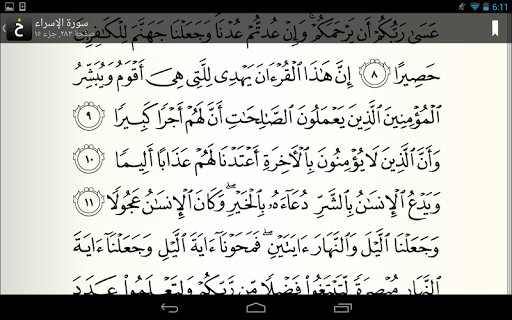 6:11
سورة الإسراء
صفحة ٢٨٣، جزء ١٥
عَسَىٰ رَبُّكُمْ أَن يَرْحَمَكُمْ ۚ وَإِنْ عُدتُّمْ عُدْنَا وَجَعَلْنَا جَهَنَّمَ لِلْكَٰفِرِينَ
حَصِيرًا ٨ إِنَّ هَٰذَا ٱلْقُرْءَانَ يَهْدِى لِلَّتِى هِىَ أَقْوَمُ وَيُبَشِّرُ
ٱلْمُؤْمِنِينَ ٱلَّذِينَ يَعْمَلُونَ ٱلصَّٰلِحَٰتِ أَنَّ لَهُمْ أَجْرًا كَبِيرًا ٩
وَأَنَّ ٱلَّذِينَ لَا يُؤْمِنُونَ بِٱلْءَاخِرَةِ أَعْتَدْنَا لَهُمْ عَذَابًا أَلِيمًا ١٠
وَيَدْعُ ٱلْإِنسَٰنُ بِٱلشَّرِّ دُعَآءَهُۥ بِٱلْخَيْرِ ۖ وَكَانَ ٱلْإِنسَٰنُ عَجُولًا ١١
وَجَعَلْنَا ٱلَّيْلَ وَٱلنَّهَارَ ءَايَتَيْنِ ۖ فَمَحَوْنَآ ءَايَةَ ٱلَّيْلِ وَجَعَلْنَآ ءَايَةَ
ٱلنَّهَارِ مُبْصِرَةً لِّتَبْتَغُوا۟ فَضْلًا مِّن رَّبِّكُمْ وَلِتَعْلَمُوا۟ عَدَدَ